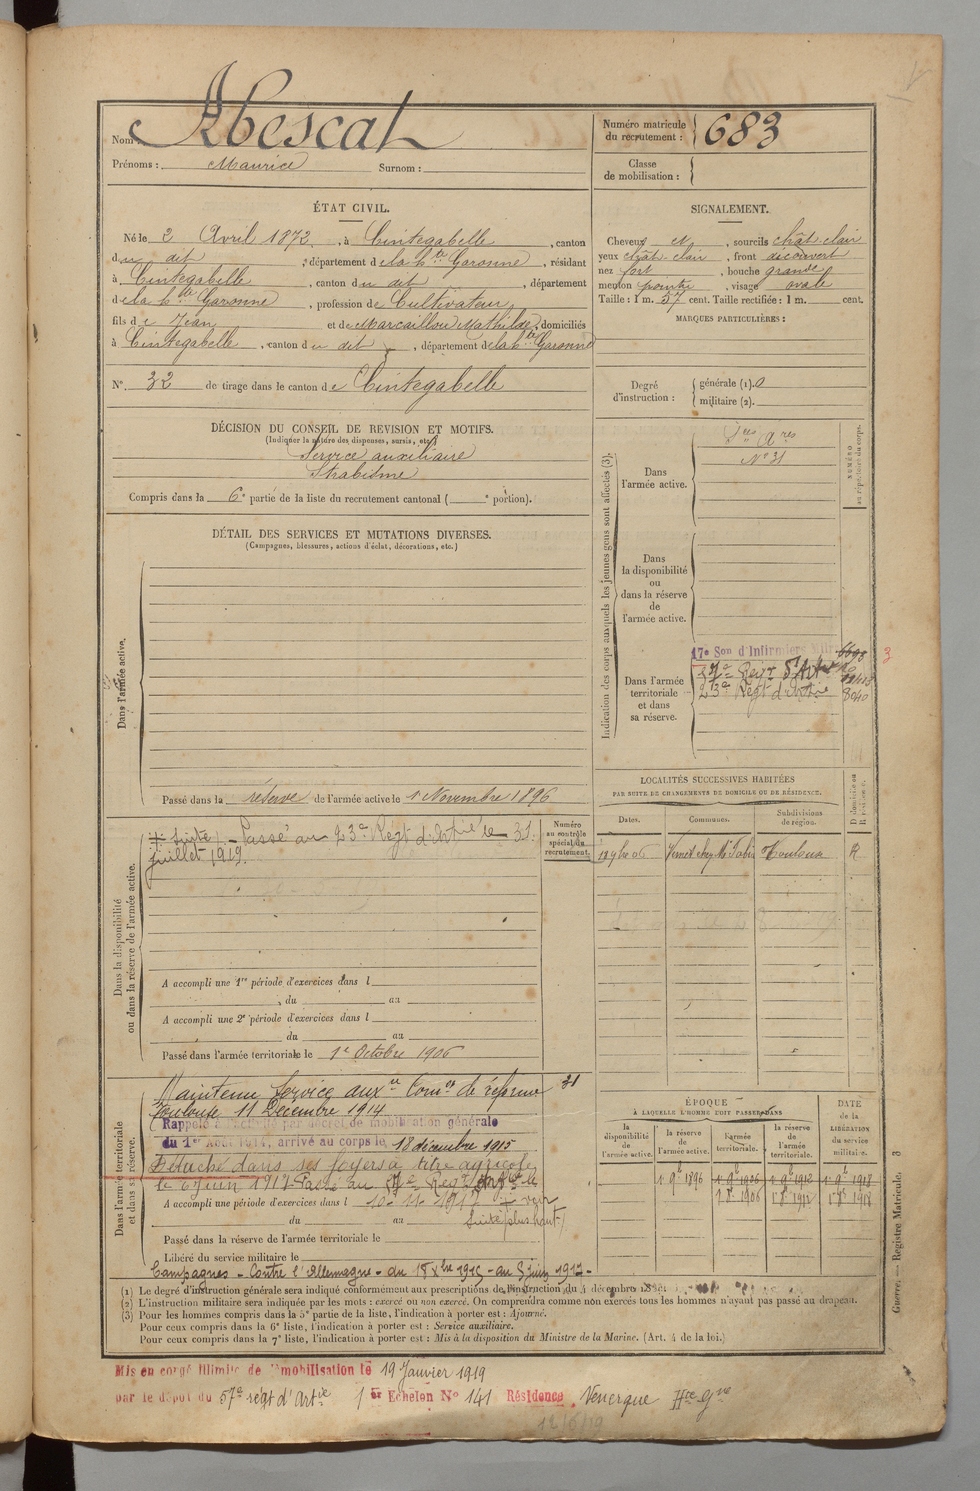 Nom : Abescat
Prénoms : Maurice Surnom :
Numéro matricule du recrutement : 683
Classe de mobilisation :
ÉTAT CIVIL.
Né le 2 Avril 1872, à Cintegabelle, canton
du dit, département de la Hte Garonne, résidant
à Cintegabelle, canton du dit, département
de la hte Garonne, profession de Cultivateur,
fils de Jean et de Marcaillou Mathilde, domiciliés
à Cintegabelle, canton du dit, département de la hte Garonne
N° 32 de tirage dans le canton de Cintegabelle
SIGNALEMENT.
Cheveux N, sourcils chât clair
yeux chât clair, front découvert
nez fort, bouche grande
menton pointu, visage ovale
Taille : 1 m. 57 cent. Taille rectifiée : 1 m. cent.
MARQUES PARTICULIÈRES :
Degré d'instruction : générale (1). 0
militaire (2).
DÉCISION DU CONSEIL DE REVISION ET MOTIFS.
(Indiquer la nature des dispenses, sursis, etc.)
Service auxiliaire
Strabisme
Compris dans la 6e partie de la liste du recrutement cantonal ( e portion).
DÉTAIL DES SERVICES ET MUTATIONS DIVERSES.
(Campagnes, blessures, actions d'éclat, décorations, etc.)
Dans l'armée active.
Passé dans la réserve de l'armée active le 1 Novembre 1896
Indication des corps auxquels les jeunes gens sont affectés (3).
NUMÉRO au répertoire du corps.
Dans l'armée active.
N° 31
Dans la disponibilité ou dans la réserve de l'armée active.
Dans l'armée territoriale et dans sa réserve.
17e Son d'Infirmiers Mil
57e Regt d'Art
23e Regt d'Artie
3
LOCALITÉS SUCCESSIVES HABITÉES
PAR SUITE DE CHANGEMENTS DE DOMICILE OU DE RÉSIDENCE.
Dates. Communes. Subdivisions de région. D domicile ou R résidence.
Toulouse R
Dans la disponibilité ou dans la réserve de l'armée active.
Numéro au contrôle spécial du recrutement.
+ suite) - Passé au 23e Régt d'Artie le 31
juillet 1919.
A accompli une 1re période d'exercices dans l
du au
A accompli une 2e période d'exercices dans l
du au
Passé dans l'armée territoriale le 1er Octobre 1906
Dans l'armée territoriale et dans sa réserve.
Maintenu Service auxre Comon de réforme 31
Toulouse 11 Décembre 1914
Rappelé à l'activité par décret de mobilisation générale
du 1er Août 1914, arrivé au corps le 18 décembre 1915
Détaché dans ses foyers à titre agricole
le 6 juin 1917 Passé au 57e Regt Artie le
A accompli une période d'exercices dans l 10-11-1917 + voir
du au suite plus haut)
Passé dans la réserve de l'armée territoriale le
Libéré du service militaire le
Campagnes - Contre l'Allemagne - du 18 Xbre 1915 - au 5 juin 1917 -
ÉPOQUE
A LAQUELLE L'HOMME DOIT PASSER DANS
DATE de la LIBÉRATION du service militaire.
la disponibilité de l'armée active. la réserve de l'armée active. l'armée territoriale. la réserve de l'armée territoriale.
1 9e 1896 1 9e 1906 1 9e 1912 1 9e 1918
1 8e 1906 1 8e 1912 1 8e 1918
(1) Le degré d'instruction générale sera indiqué conformément aux prescriptions de l'instruction du 4 décembre 1889.
(2) L'instruction militaire sera indiquée par les mots : exercé ou non exercé. On comprendra comme non exercés tous les hommes n'ayant pas passé au drapeau.
(3) Pour les hommes compris dans la 5e partie de la liste, l'indication à porter est : Ajourné.
Pour ceux compris dans la 6e liste, l'indication à porter est : Service auxiliaire.
Pour ceux compris dans la 7e liste, l'indication à porter est : Mis à la disposition du Ministre de la Marine. (Art. 4 de la loi.)
Guerre. — Registre Matricule. 3
Mis en congé illimité de démobilisation le 19 Janvier 1919
par le dépôt du 57e régt d'Artie 1er Echelon N° 141 Résidence Venerque Hte Gne
12/6/19